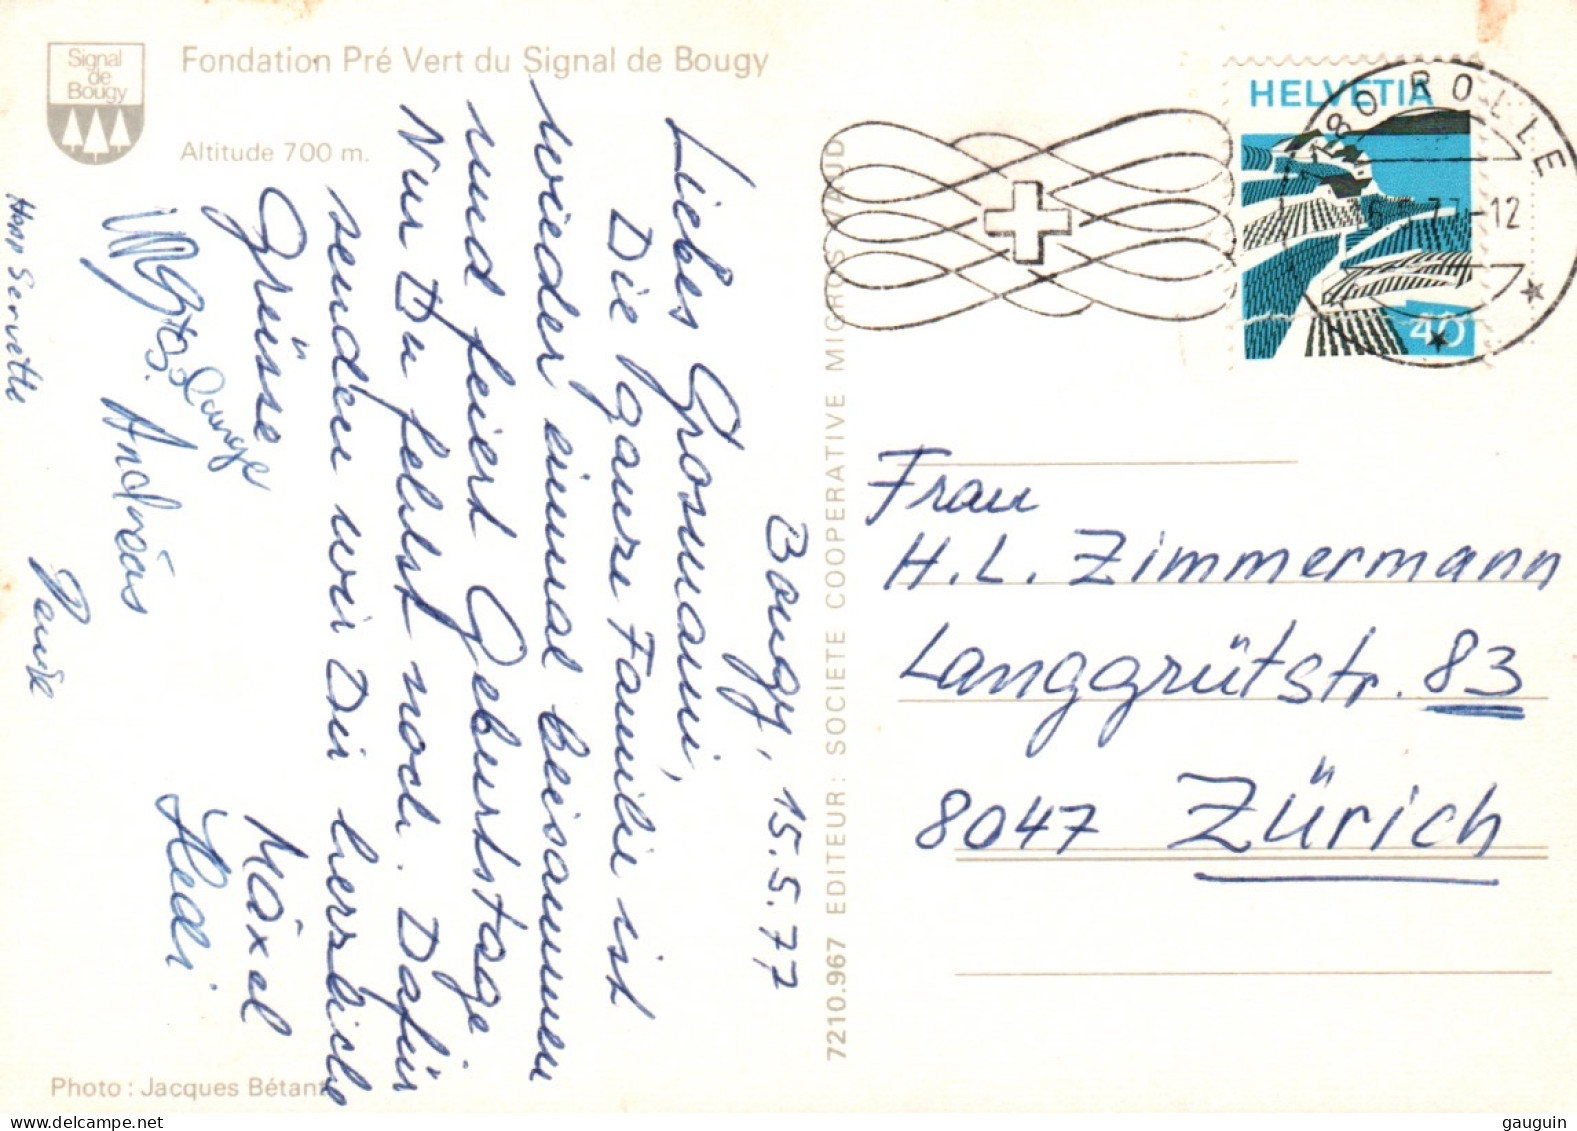 Signal
de
Bougy
Fondation Pré Vert du Signal de Bougy
Altitude 700 m.
Bougy, 15.5.77
Liebes Grosmami,
Die ganze Familie ist
wieder einmal beisammen
und feiert Geburtstage.
Nur Du fehlst noch. Dafür
senden wir Dir herzliche
Grüsse
Mäxel
Hedi
Andreas
Hopp Servette
Photo : Jacques Bétant
7210.967 EDITEUR : SOCIETE COOPERATIVE MIGROS VAUD
HELVETIA
40
1180 ROLLE
77-12
Frau
H. L. Zimmermann
Langgrütstr. 83
8047 Zürich
gauguin